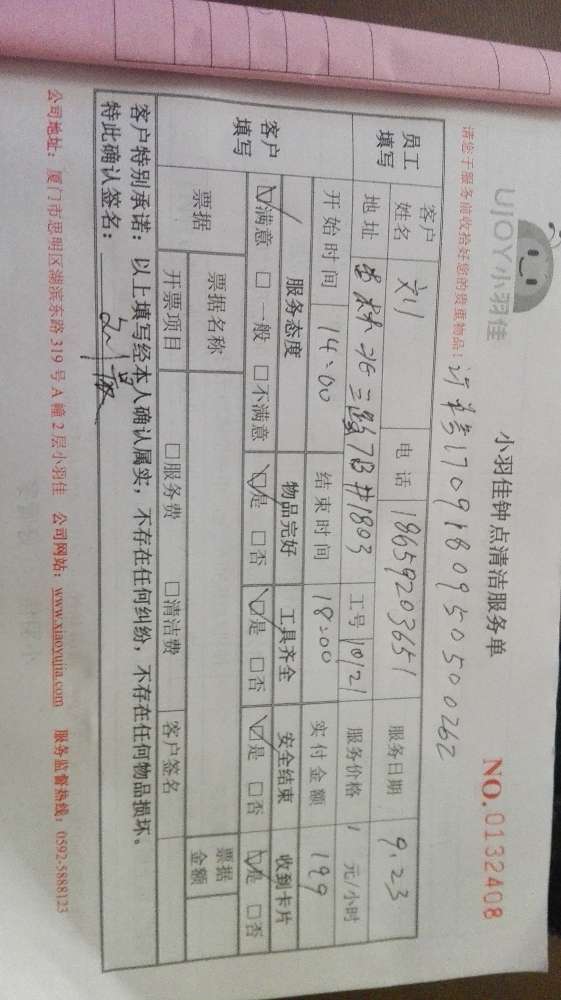 UJOY小羽佳
小羽佳钟点清洁服务单
NO.0132408
请您于服务前收拾好您的贵重物品！
17091809505000262
员工填写
客户姓名 刘 电话 18659203651 服务日期 9.23
地址 吉林北三路7B#1803 工号 10121 服务价格 1 元/小时
开始时间 14:00 结束时间 18:00 实付金额 199
客户填写
服务态度 物品完好 工具齐全 安全结束 收到卡片
☑满意 □一般 □不满意 ☑是 □否 ☑是 □否 ☑是 □否 ☑是 □否
票据 票据名称 票据金额
开票项目 □服务费 □清洁费 客户签名
客户特别承诺：以上填写经本人确认属实，不存在任何纠纷，不存在任何物品损坏。
特此确认签名：
公司地址：厦门市思明区湖滨东路319号A幢2层小羽佳 公司网站：www.xiaoyujia.com 服务监督热线：0592-5888123